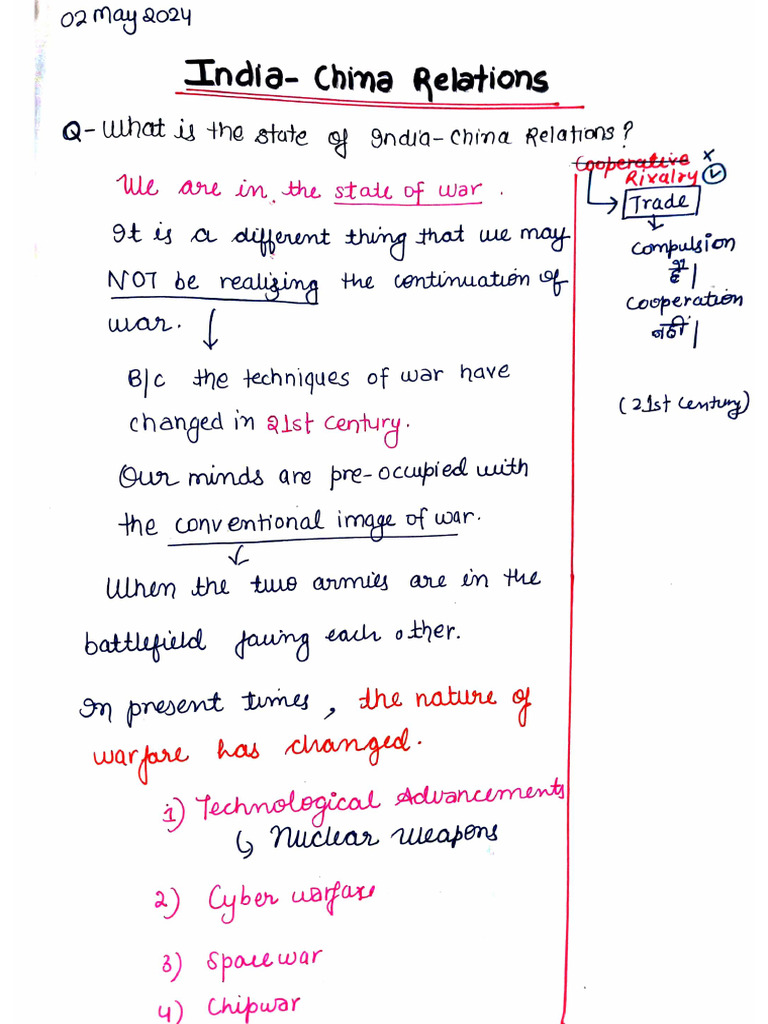 02 May 2024
India- China Relations
Q- What is the state of India-China Relations?
We are in the state of war.
It is a different thing that we may
NOT be realizing the continuation of
war.
B/c the techniques of war have
changed in 21st Century.
Our minds are pre-occupied with
the conventional image of war.
When the two armies are in the
battlefield facing each other.
In present times, the nature of
warfare has changed.
1) Technological Advancements
Nuclear Weapons
2) Cyber warfare
3) Space war
4) Chipwar
Cooperative x
Rivalry
Trade
Compulsion
है|
Cooperation
नहीं|
(21st Century)